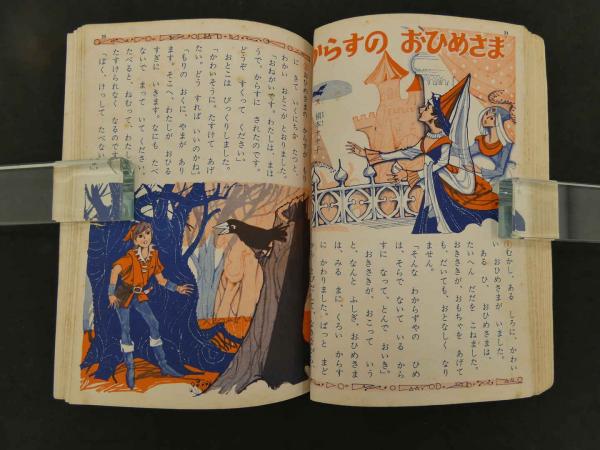 からすの おひめさま
むかし、ある しろに、かわい
い おひめさまが いました。
ある ひ、おひめさまは、
たいへん だだを こねました。
おきさきが、おもちゃを あげて
も、だいても、おとなしく なり
ません。
「そんな わからずやの ひめ
は、そらで ないて いる から
すに なって、とんで おいき」
おきさきが、おこって いう
と、なんと ふしぎ、おひめさま
は、みる まに、くろい からす
に かわりました。ぱっと まど
に きて いくにちも たつと、
わかい おとこが とおりました。
「おねがいです。わたしは、まほ
うで、からすに されたのです。
どうぞ すくって ください」
おとこは びっくりしました。
「かわいそうに。たすけて あげ
たい。どう すれば いいのかね」
「もりの おくに、やまが あり
ます。そこへ、わたしが おひる
すぎに いきます。なにも たべ
ないで まって いて ください。
たべると、ねむって、わたしを
たすけられなく なるのです」
「ぼく、けっして たべない